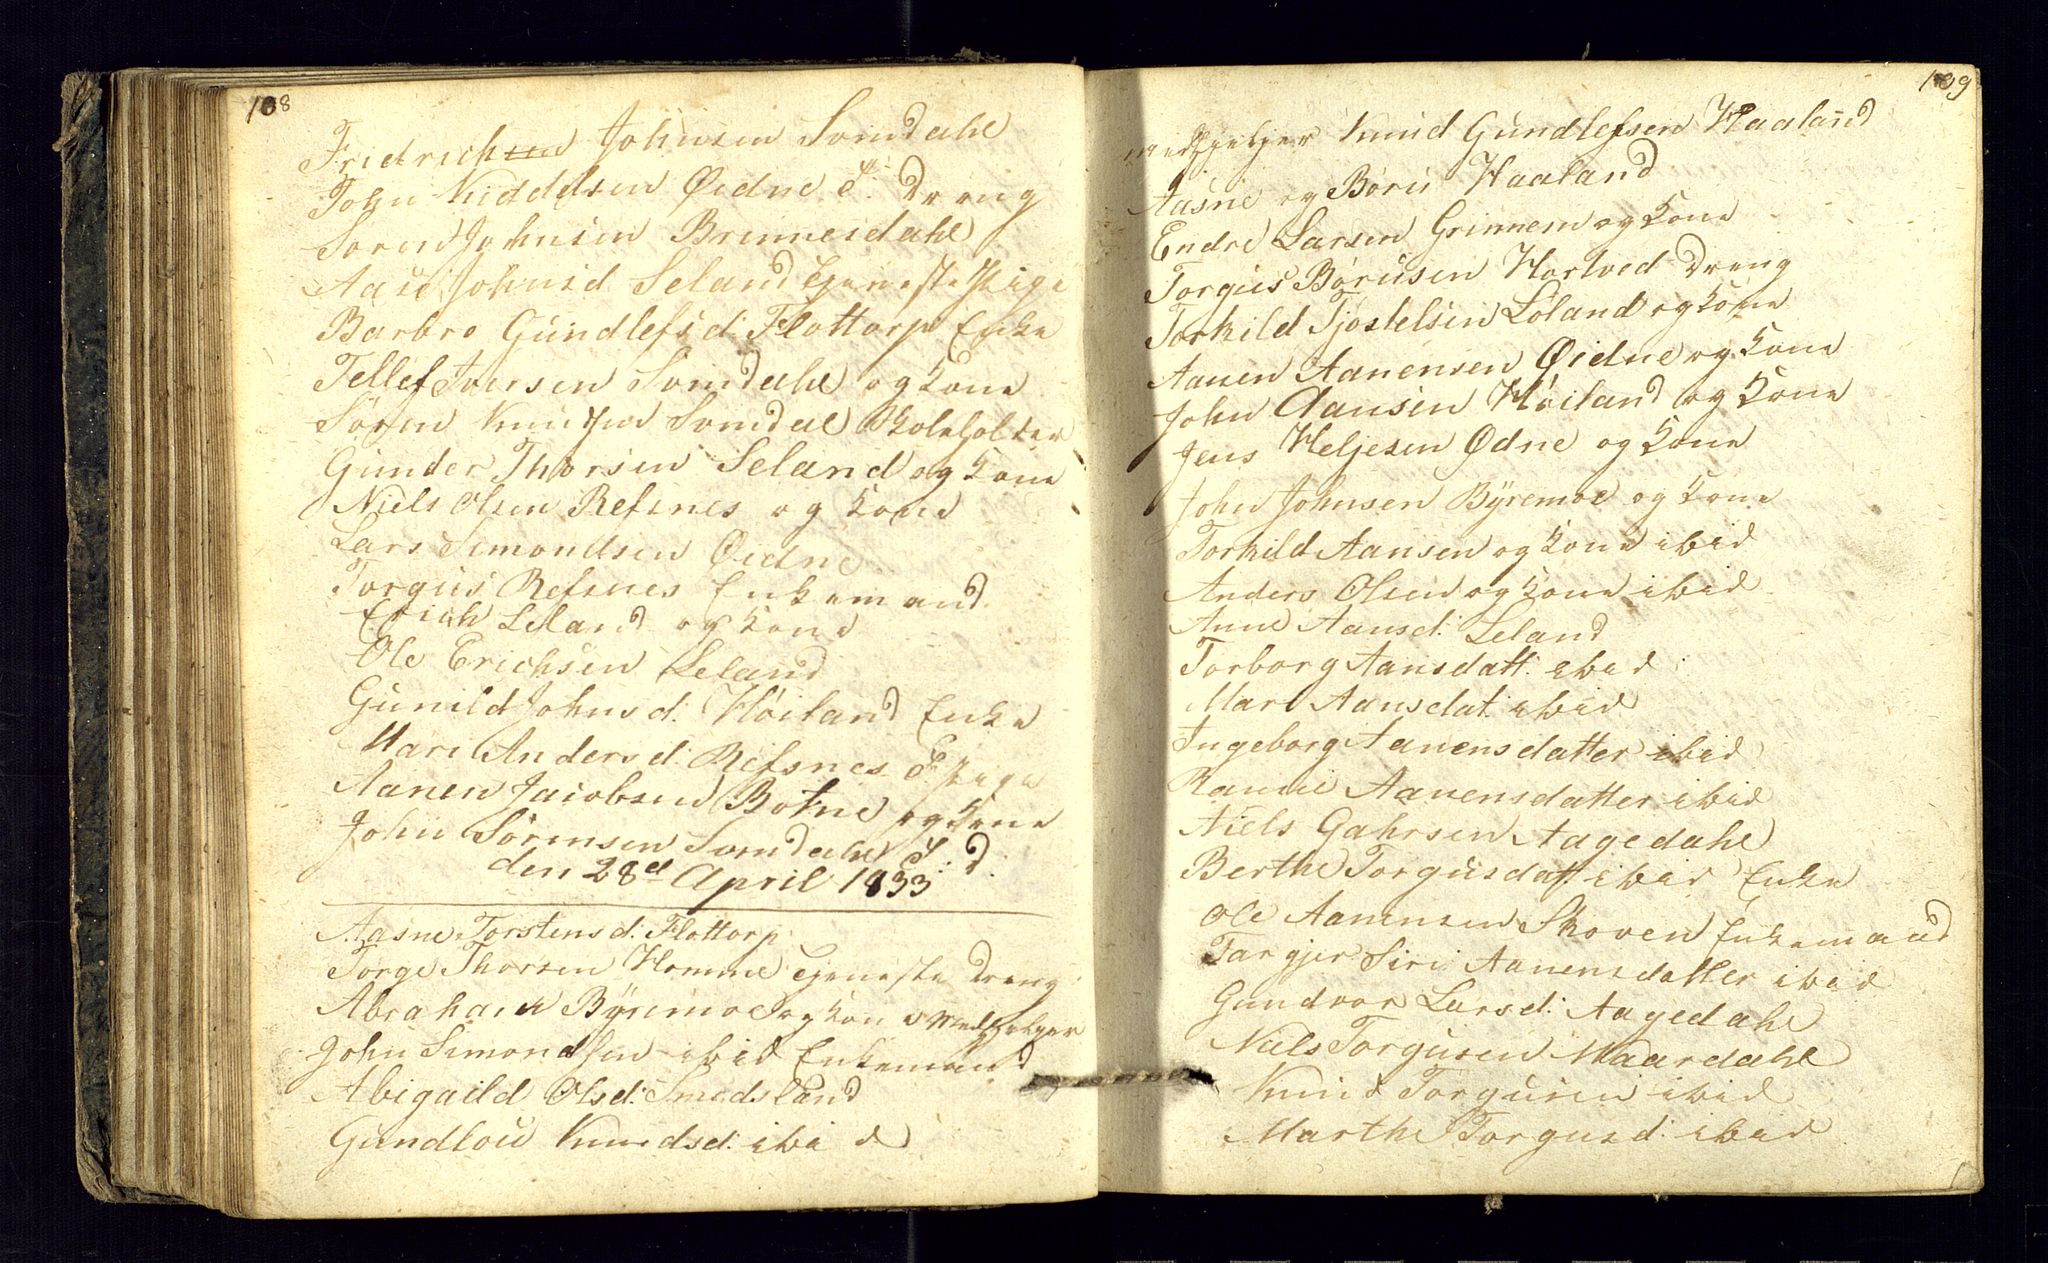 108
Fridrich Johnsen Somdahl
John Kiddelsen Øidne T: Dreng
Søren Johnsen Brennesdahl
Aase Johnsd Seland Tjeneste Pige
Barbro Gundlefsd: Flottorp Enke
Tellef Iversen Somdahl og Kone
Søren Knudsen Somdal Skoleholder
Gunder Thorsen Seland og Kone
Niels Olsen Refsnes og Kone
Lars Simondsen Øidne
Torgus Refsnes Enkemand
Erich Leland og Kone
Ole Erichsen Leland
Gunild Johnsd: Höiland Enke
Mari Andersd: Refsnes T Pige
Aanen Jacobsen Botne og Kone
John Sörensen Somdahl T: D.
den 28d April 1833
Aasne Torstensd: Flottorp
Torge Thorsen Homme Tjeneste Dreng
Abraham Byremoe og Kone Medhjelper
John Simondsen ibid Enkemand
Abigaild Olsd: Smedsland
Gundlou Knudsd: ibid
109
Medhjelper Knud Gundlefsen Haaland
Aasne og Børu Haaland
Endre Larsen Grinnem og Kone
Torgus Børusen Hortved Dreng
Torkild Tjostelsen Löland og Kone
Aanen Aanensen Øidne og Kone
John Aansen Höiland og Kone
Jens Heljesen Ødne og Kone
John Johnsen Byremoe og Kone
Torkild Aansen og Kone ibid
Anders Olsen og Kone ibid
Anne Aansd: Leland
Torborg Aansdatt: ibid
Mari Aansdat: ibid
Ingeborg Aanensdatter ibid
Rannei Aanensdatter ibid
Niels Gahrsen Aagedahl
Berthe Torgusdatt: ibid Enke
Ole Aanensen Skoven Enkemand
Targjer Siri Aanensdatter ibid
Gundvor Larsd: Aagedahl
Niels Torgusen Haardahl
Knud Torgusen ibid
Marthe Torgusd: ibid